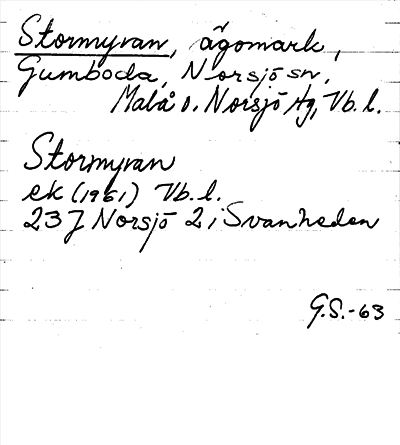 Stormyran, ägomark,
Gumboda, Norsjö sn,
Malå o. Norsjö tg, Vb. l.
Stormyran
ek (1961) Vb. l.
23 J Norsjö 2 i Svanheden
G.S.-63